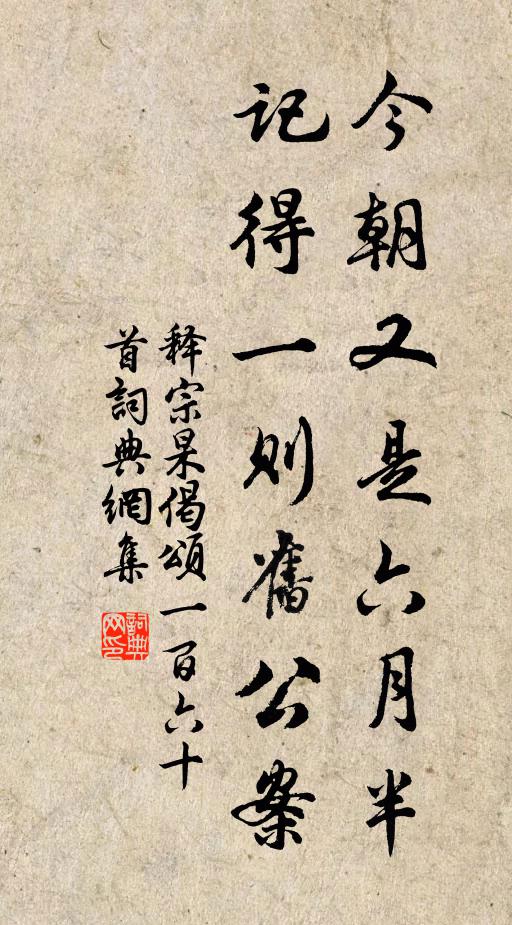 今朝又是六月半
記得一則舊公案
释宗杲偈頌一百六十
首詞典網集
詞典网印